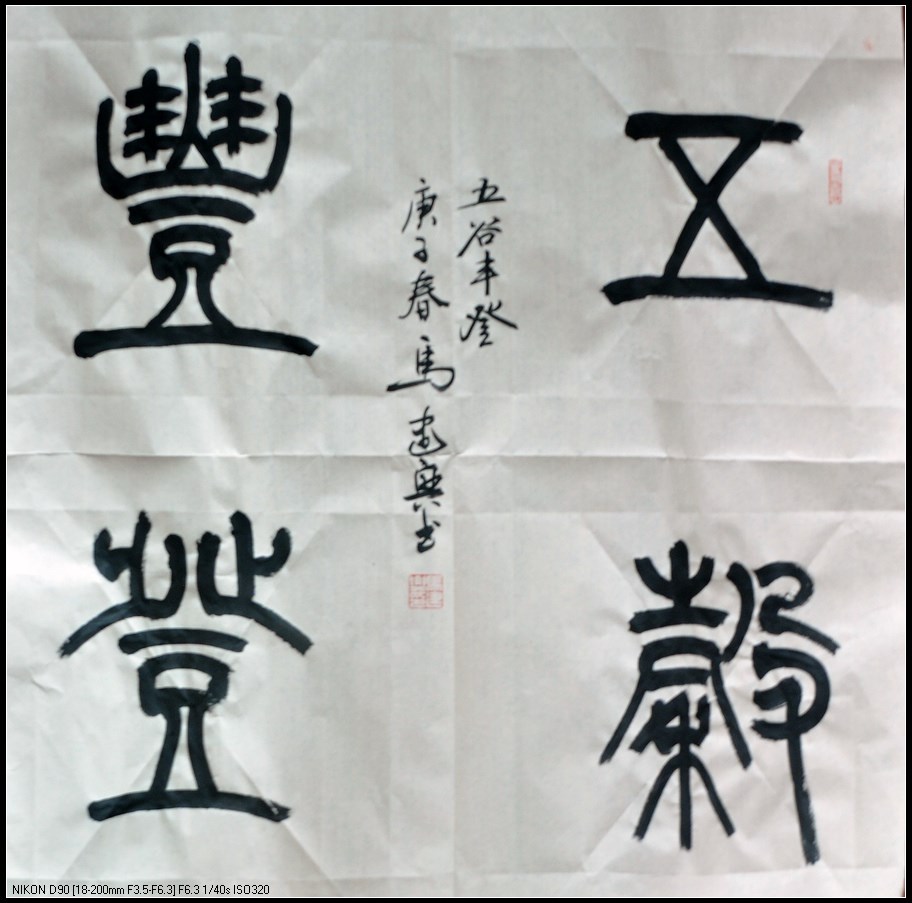 五穀
豐登
五谷丰登
庚子春馬建興书
NIKON D90 [18-200mm F3.5-F6.3] F6.3 1/40s ISO320